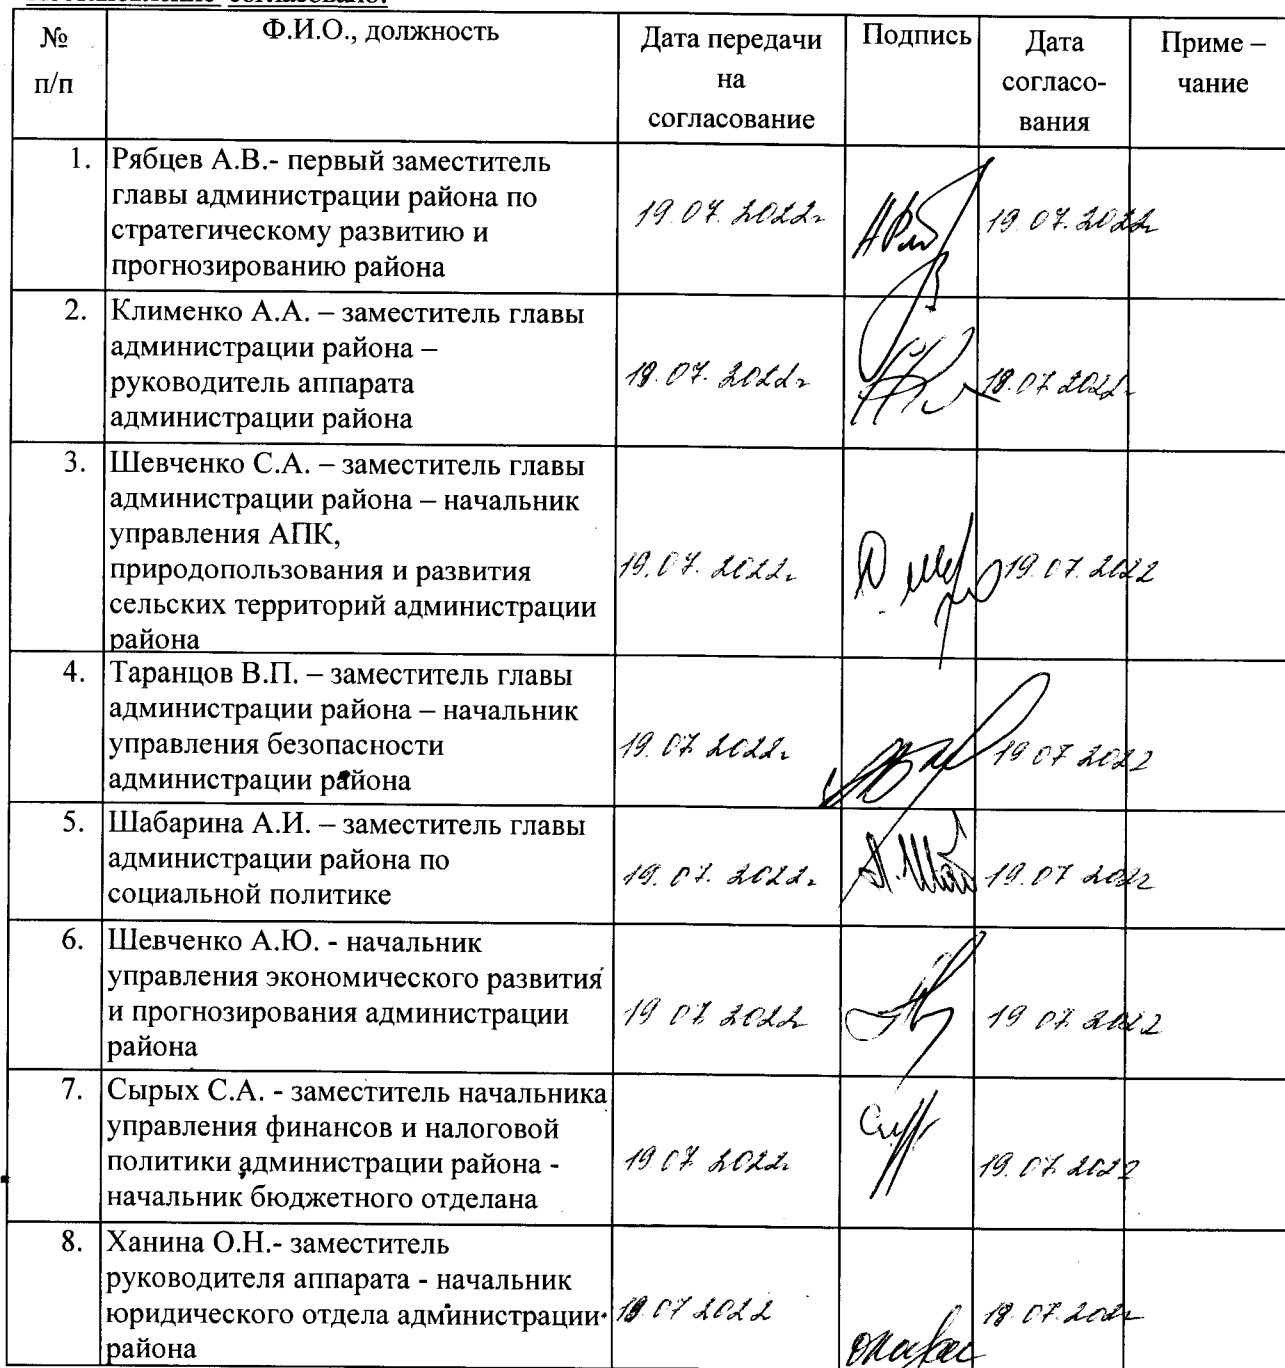 согласовано:
№ п/п | Ф.И.О., должность | Дата передачи на согласование | Подпись | Дата согласо- вания | Приме – чание
1. Рябцев А.В.- первый заместитель
главы администрации района по
стратегическому развитию и
прогнозированию района
19.07.2022г 19.07.2022г
2. Клименко А.А. – заместитель главы
администрации района –
руководитель аппарата
администрации района
07.2022г 07.2022г
3. Шевченко С.А. – заместитель главы
администрации района – начальник
управления АПК,
природопользования и развития
сельских территорий администрации
района
19.07.2022г 19.07.2022
4. Таранцов В.П. – заместитель главы
администрации района – начальник
управления безопасности
администрации района
19.07.2022г 19.07.2022
5. Шабарина А.И. – заместитель главы
администрации района по
социальной политике
19.07.2022г 19.07.2022
6. Шевченко А.Ю. - начальник
управления экономического развития
и прогнозирования администрации
района
19.07.2022 19.07.2022
7. Сырых С.А. - заместитель начальника
управления финансов и налоговой
политики администрации района -
начальник бюджетного отделана
19.07.2022г 19.07.2022
8. Ханина О.Н.- заместитель
руководителя аппарата - начальник
юридического отдела администрации
района
07 2022 07.2022